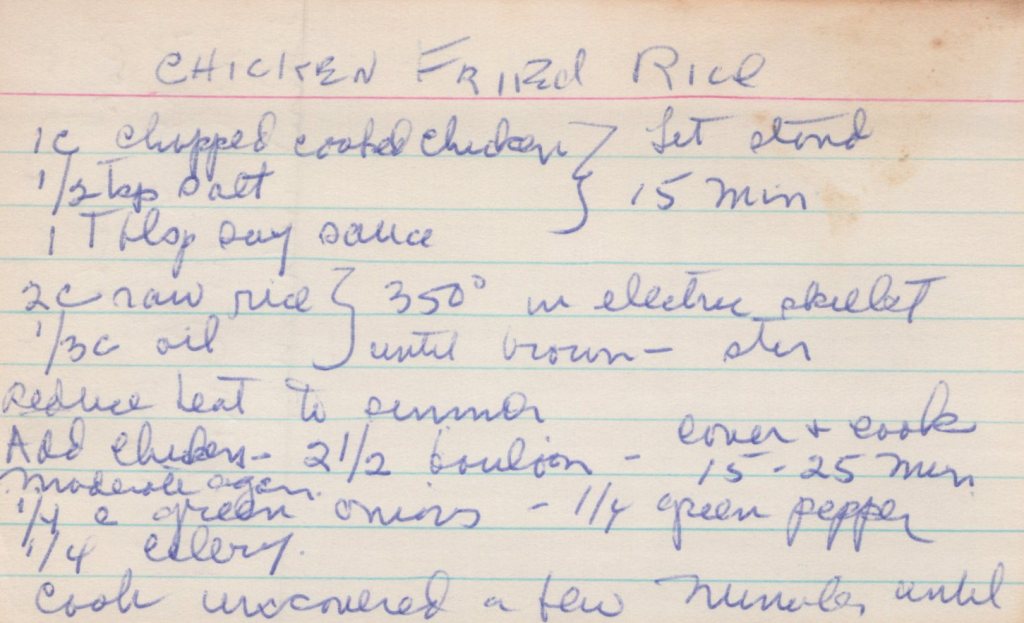 CHICKEN FRIED RICE
1C chopped cooked chicken } Let stand
1/2 tsp salt } 15 min
1 Tblsp soy sauce
2C raw rice } 350° in electric skillet
1/3C oil } until brown – stir
Reduce heat to simmer
Add chicken – 2 1/2 boulion – cover + cook 15-25 min
moderate again
1/4 c green onions – 1/4 green pepper
1/4 celery.
Cook uncovered a few minutes until